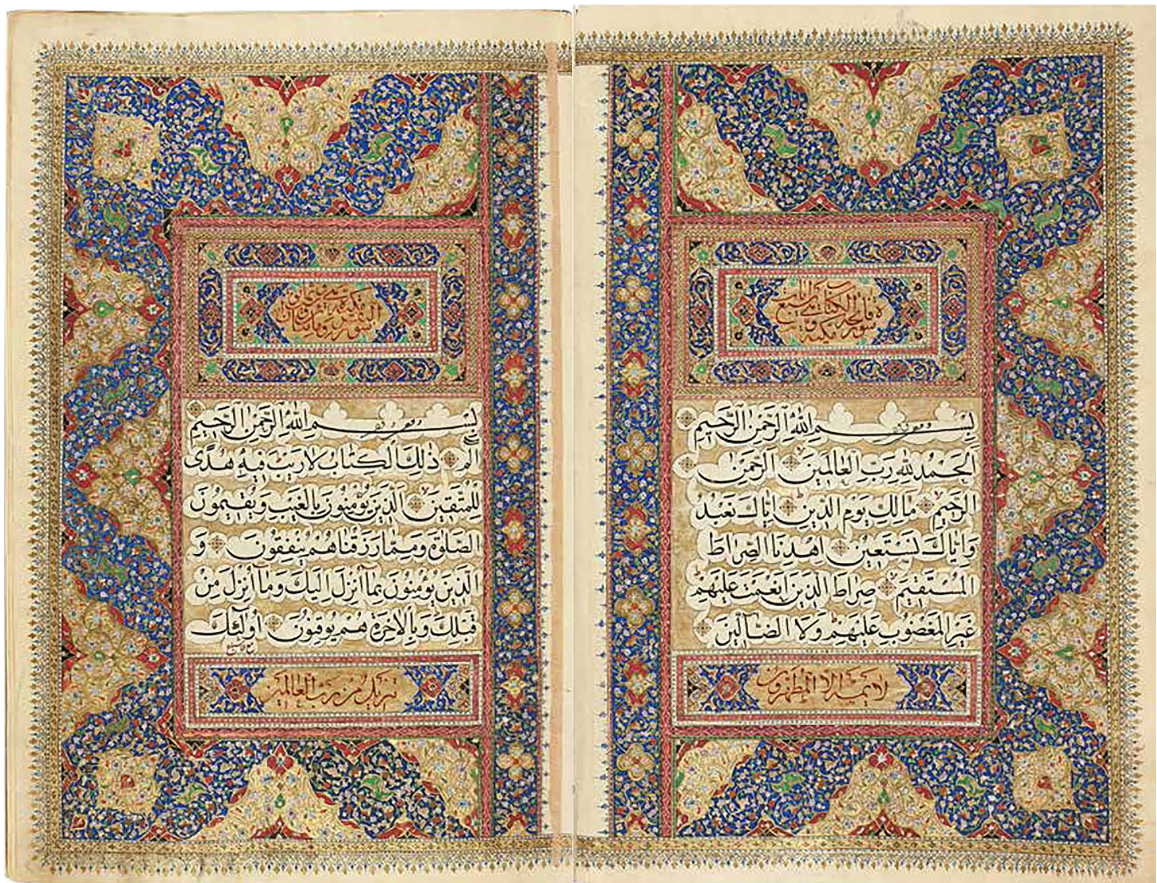 سورة فاتحة الكتاب
بِسْمِ اللهِ الرَّحْمٰنِ الرَّحِيمِ
اَلْحَمْدُ لِلّٰهِ رَبِّ الْعَالَمِينَ الرَّحْمٰنِ
الرَّحِيمِ مَالِكِ يَوْمِ الدِّينِ اِيَّاكَ نَعْبُدُ
وَاِيَّاكَ نَسْتَعِينُ اِهْدِنَا الصِّرَاطَ
الْمُسْتَقِيمَ صِرَاطَ الَّذِينَ اَنْعَمْتَ عَلَيْهِمْ
غَيْرِ الْمَغْضُوبِ عَلَيْهِمْ وَلَا الضَّالِّينَ
لا يمسه الا المطهرون
بِسْمِ اللهِ الرَّحْمٰنِ الرَّحِيمِ
الم ذٰلِكَ الْكِتَابُ لَا رَيْبَ فِيهِ هُدًى
لِلْمُتَّقِينَ الَّذِينَ يُؤْمِنُونَ بِالْغَيْبِ وَيُقِيمُونَ
الصَّلٰوةَ وَمِمَّا رَزَقْنَاهُمْ يُنْفِقُونَ وَ
الَّذِينَ يُؤْمِنُونَ بِمَا اُنْزِلَ اِلَيْكَ وَمَا اُنْزِلَ مِنْ
قَبْلِكَ وَبِالْاٰخِرَةِ هُمْ يُوقِنُونَ اُولٰئِكَ
تنزيل من رب العالمين